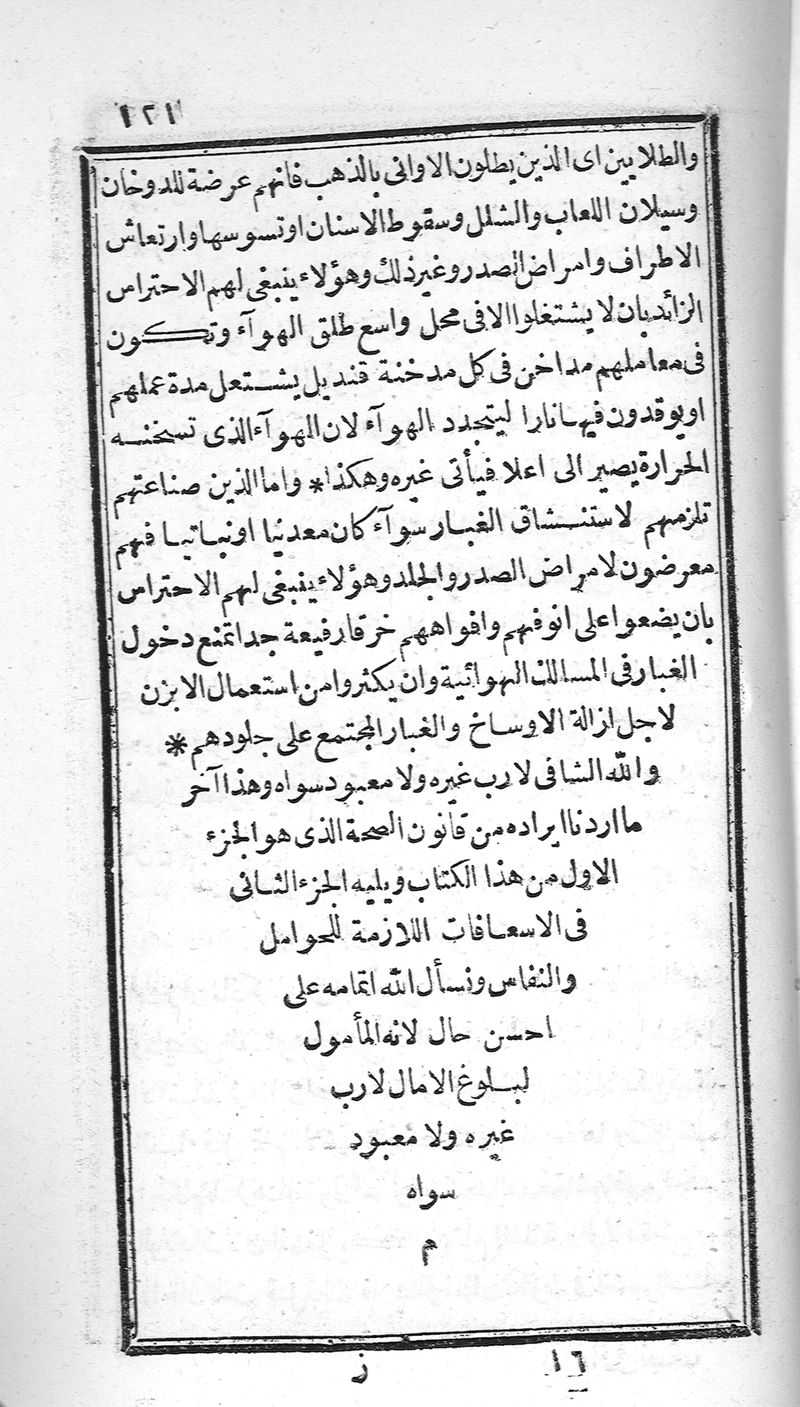 ١٢١
والطلايين اى الذين يطلون الاوانى بالذهب فانهم عرضة للدوخان
وسيلان اللعاب والشلل وسقوط الاسنان اوتسوسها وارتعاش
الاطراف وامراض الصدر وغيرذلك وهؤلاء ينبغى لهم الاحتراس
الزائد بان لا يشتغلوا الافى محل واسع طلق الهوآء وتكون
فى معاملهم مداخن فى كل مدخنة قنديل يشتعل مدة عملهم
او يوقدون فيها نارا ليتجدد الهوآء لان الهوآء الذى تسخنه
الحرارة يصير الى اعلا فيأتى غيره وهكذا * واما الذين صناعتهم
تلزمهم لاستنشاق الغبار سوآء كان معدنيا اونباتيا فهم
معرضون لامراض الصدر والجلد وهؤلاء ينبغى لهم الاحتراس
بان يضعوا على انوفهم وافواههم خرقا رفيعة جدا تمنع دخول
الغبار فى المسالك الهوائية وان يكثروا من استعمال الابزن
لاجل ازالة الاوساخ والغبار المجتمع على جلودهم *
والله الشافى لارب غيره ولا معبود سواه وهذا آخر
ما اردنا ايراده من قانون الصحة الذى هو الجزء
الاول من هذا الكتاب ويليه الجزء الثانى
فى الاسعافات اللازمة للحوامل
والنفاس ونسأل الله اتمامه على
احسن حال لانه المأمول
لبلوغ الامال لارب
غيره ولا معبود
سواه
م
١٦ ز